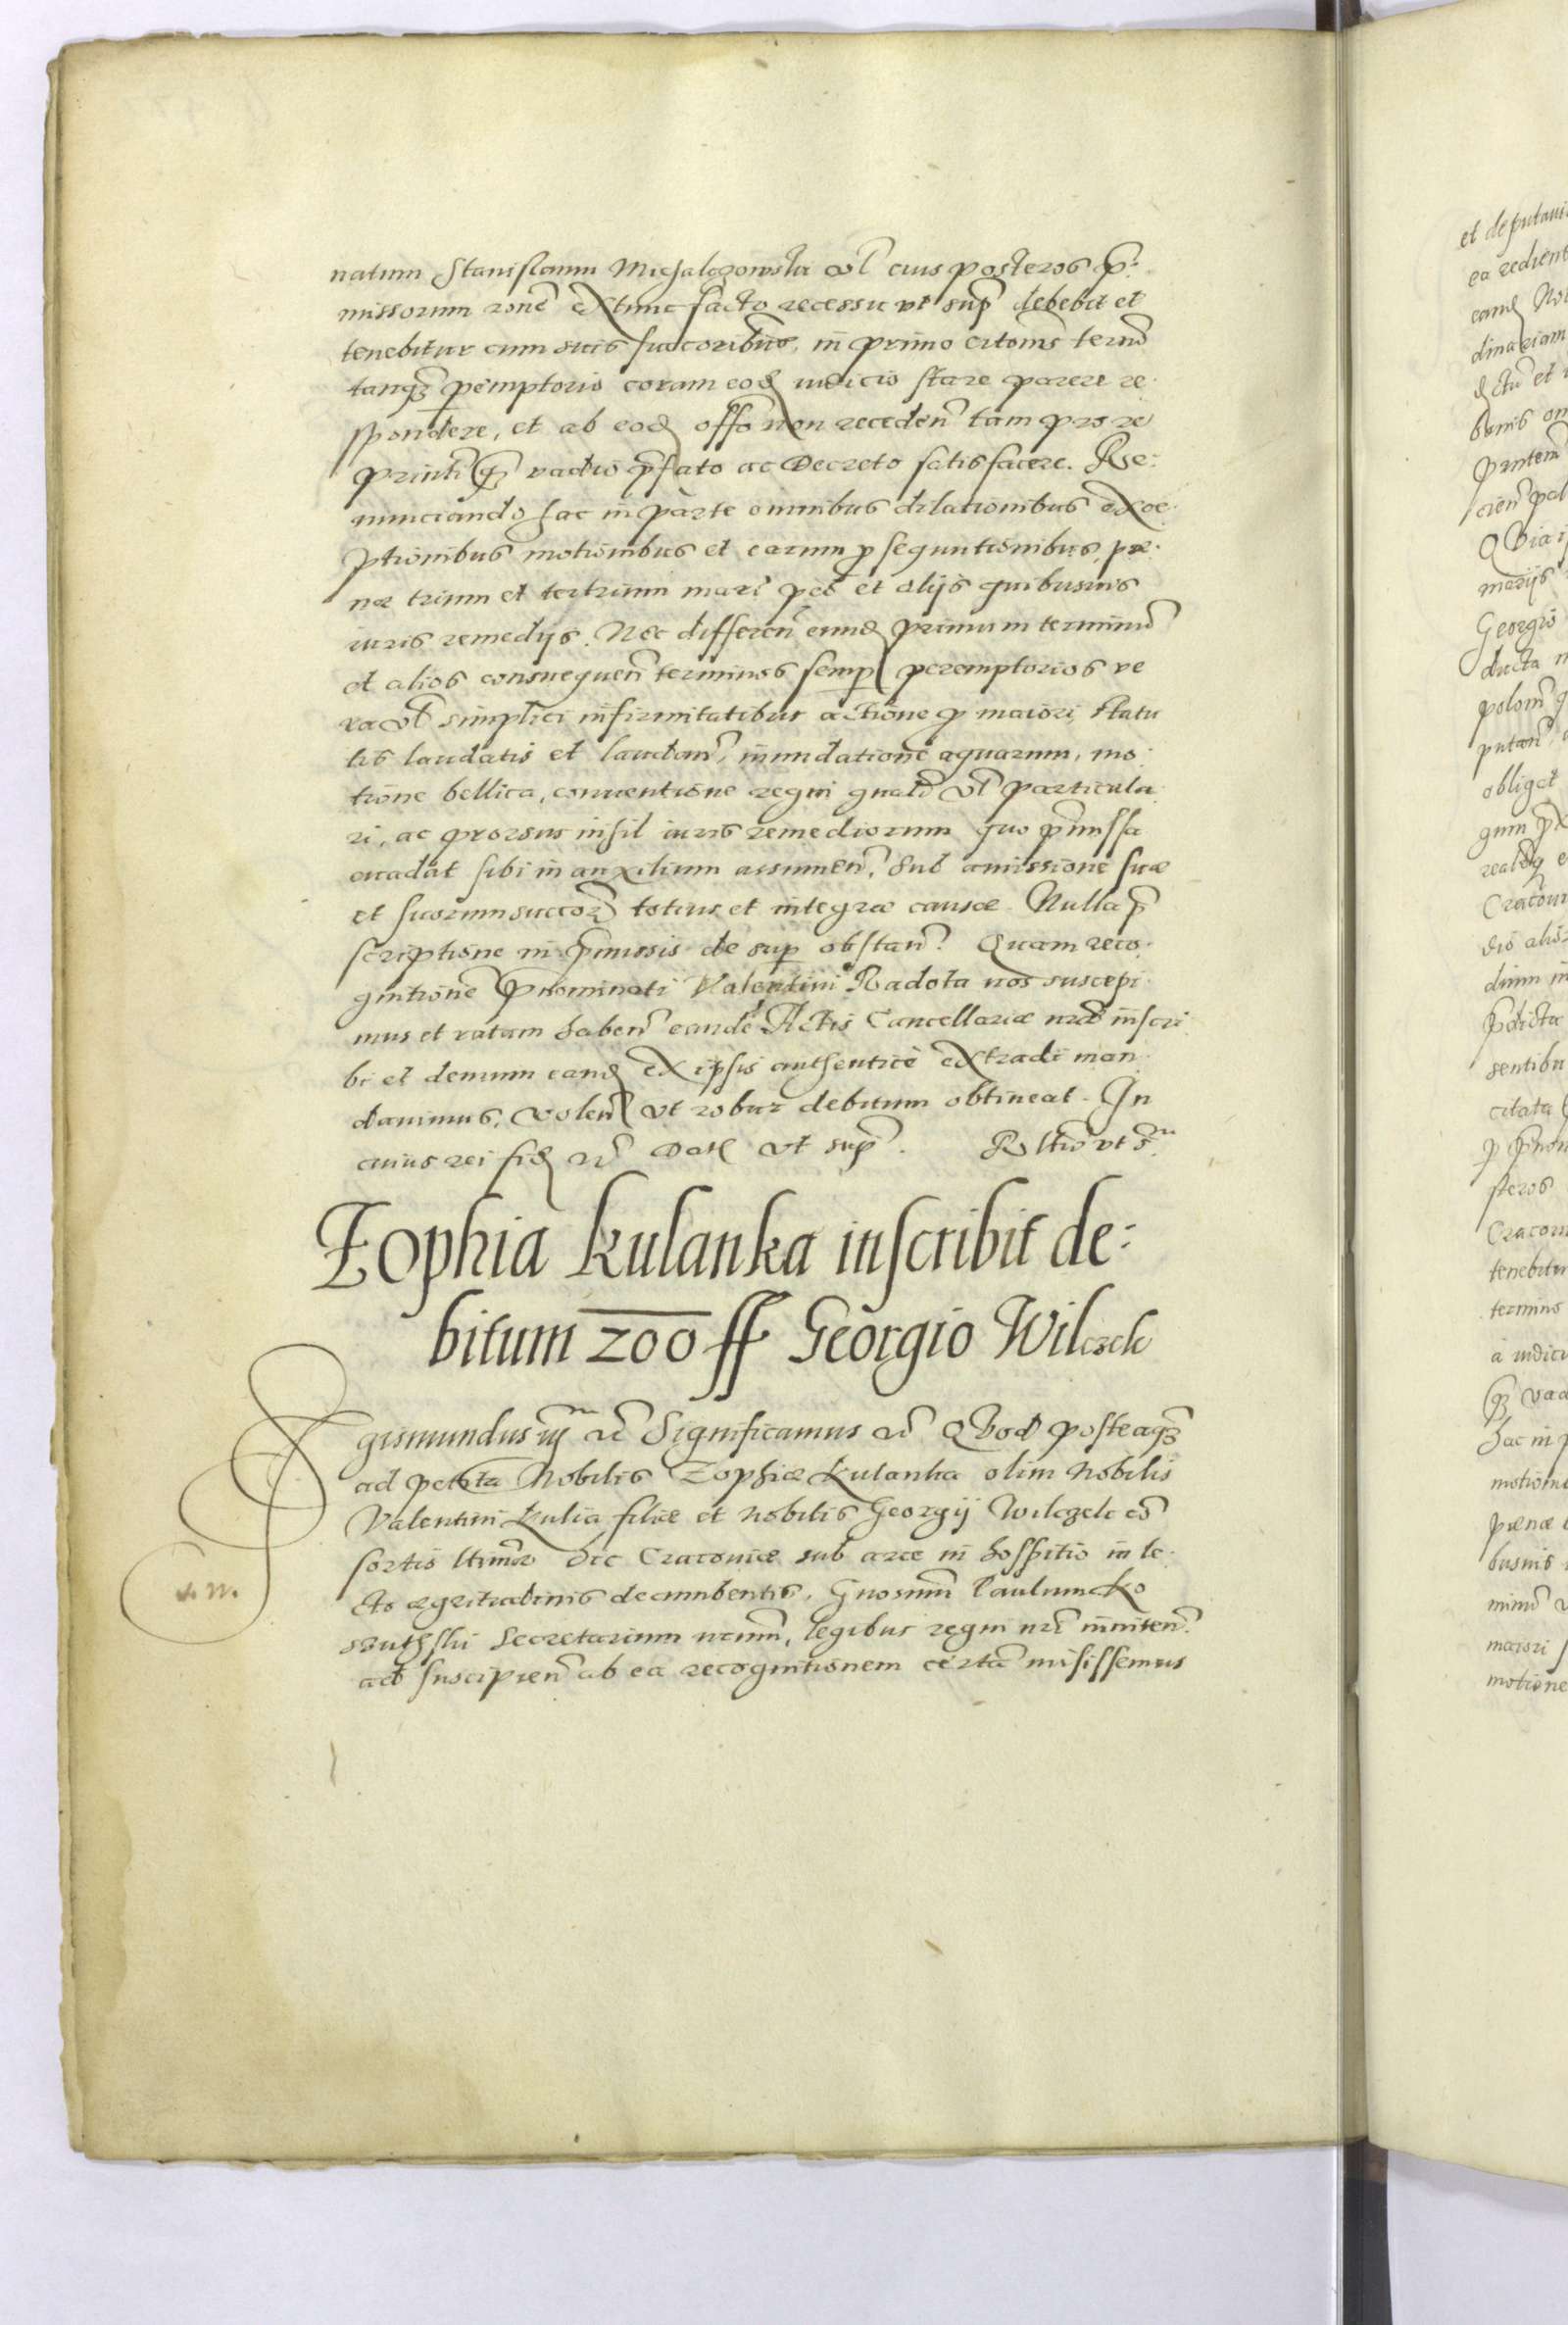 natum Stanislaum Michalczowski vl eius posteros p̃:
missorum rōne extunc facto recessu vt sup̃ debebit et
tenebitur cum suis succoribus, in primo citōnis termō
tanq̃ ꝑemptorio coram eod iudicio stare parere re:
spondere, et ab eod offō non receden̄ tam pro re
printi q̃ vadio p̃fato ac Decreto satisfacere. Re:
nunciando hac in parte omnibus dilationibus exce:
ptionibus motionibus et earum ꝓsequutionibus, pæ:
næ trium et tertrium mari peō et alijs quibusuis
iuris remedijs. Nec differen̄ eund primum terminū
et alios consuequen̄ terminos semꝑ peremptorios ve
ra vl simplici infirmitatibus actione ꝓ maiori, statu
tis laudatis et laudan̄, inundatione aquarum, mo:
tione bellica, conuentione regni gnali vl particula
ri, ac prorsus nihil iuris remediorum quo p̃missa
euadat sibi in auxilium assumen̄, Sub amissione suæ
et suorum succor̃ totius et integræ causæ. Nulla p̃
scriptione in p̃missis de suꝑ obstan̄. Quam reco:
gnitionē p̃nominati Valentini Radota nos suscepi:
mus et ratam haben̄ eandē Actis Cancellariæ nræ inscri
bi et demum eand ex ipsis authenticè extradi man:
dauimus, volen̄ vt robur debitum obtineat. In
cuius rei fid rc̃ Dat vt sup̃. Rltio vt s̃
Zophia Kulanka inscribit de:
bitum 200 ff Georgio Wilczek
Sigismundus iij rc̃ Significamus rc̃ Quod posteaq̃
ad petita Nobilis Zophiæ Kulanka olim Nobilis
Valentini Kulia filiæ et Nobilis Georgij Wilczek cō
sortis ltimæ hic Cracouiæ sub arce in hospitio in le:
cto ægritudinis decumbentis, Gnosum Paulum Ko
Secretarium nrum, legibus regni nri inniten̄
ad suscipien̄ ab ea recognitionem certū misissemus
s. n.
et deputaui
ea redient
eand Nob
dinariam
bonis om
cien̄
Quia
marijs
Georgio
ducta
polom
putan̄
obligat
Cracoui
dis alio
dium in
p̃dicta
sentibu
citata
steros
Cracoui
tenebitu
termino
a iudici
q̃ vad
hac in p
motioni
pænæ
busuis
minū
maiori
motione